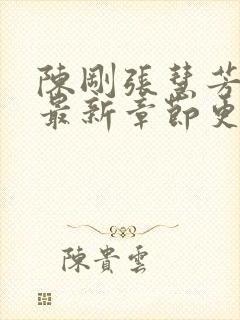 陳剛張慧芳
最新章節史
陳貴雲